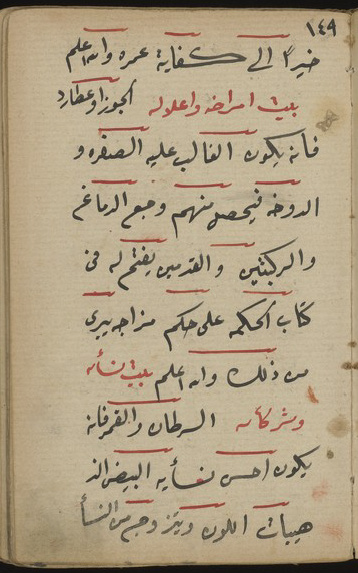 ١٤٩
خيرًا الى كفاية عمره والله اعلم
بيت امراضه واعلاله الجوزا وعطارد
فانه يكون الغالب عليه الصفره و
الدوخه فيحصل منهم وجع الدماغ
والركبتين والقدمين يفتح له فى
كتاب الحكمه على حكم مزاجه يبرى
من ذلك والله اعلم بيت نسائه
وشركائه السرطان والقمر فانه
يكون احسن نسايه البيض الذ
هيبات اللون ويتزوج من النسا